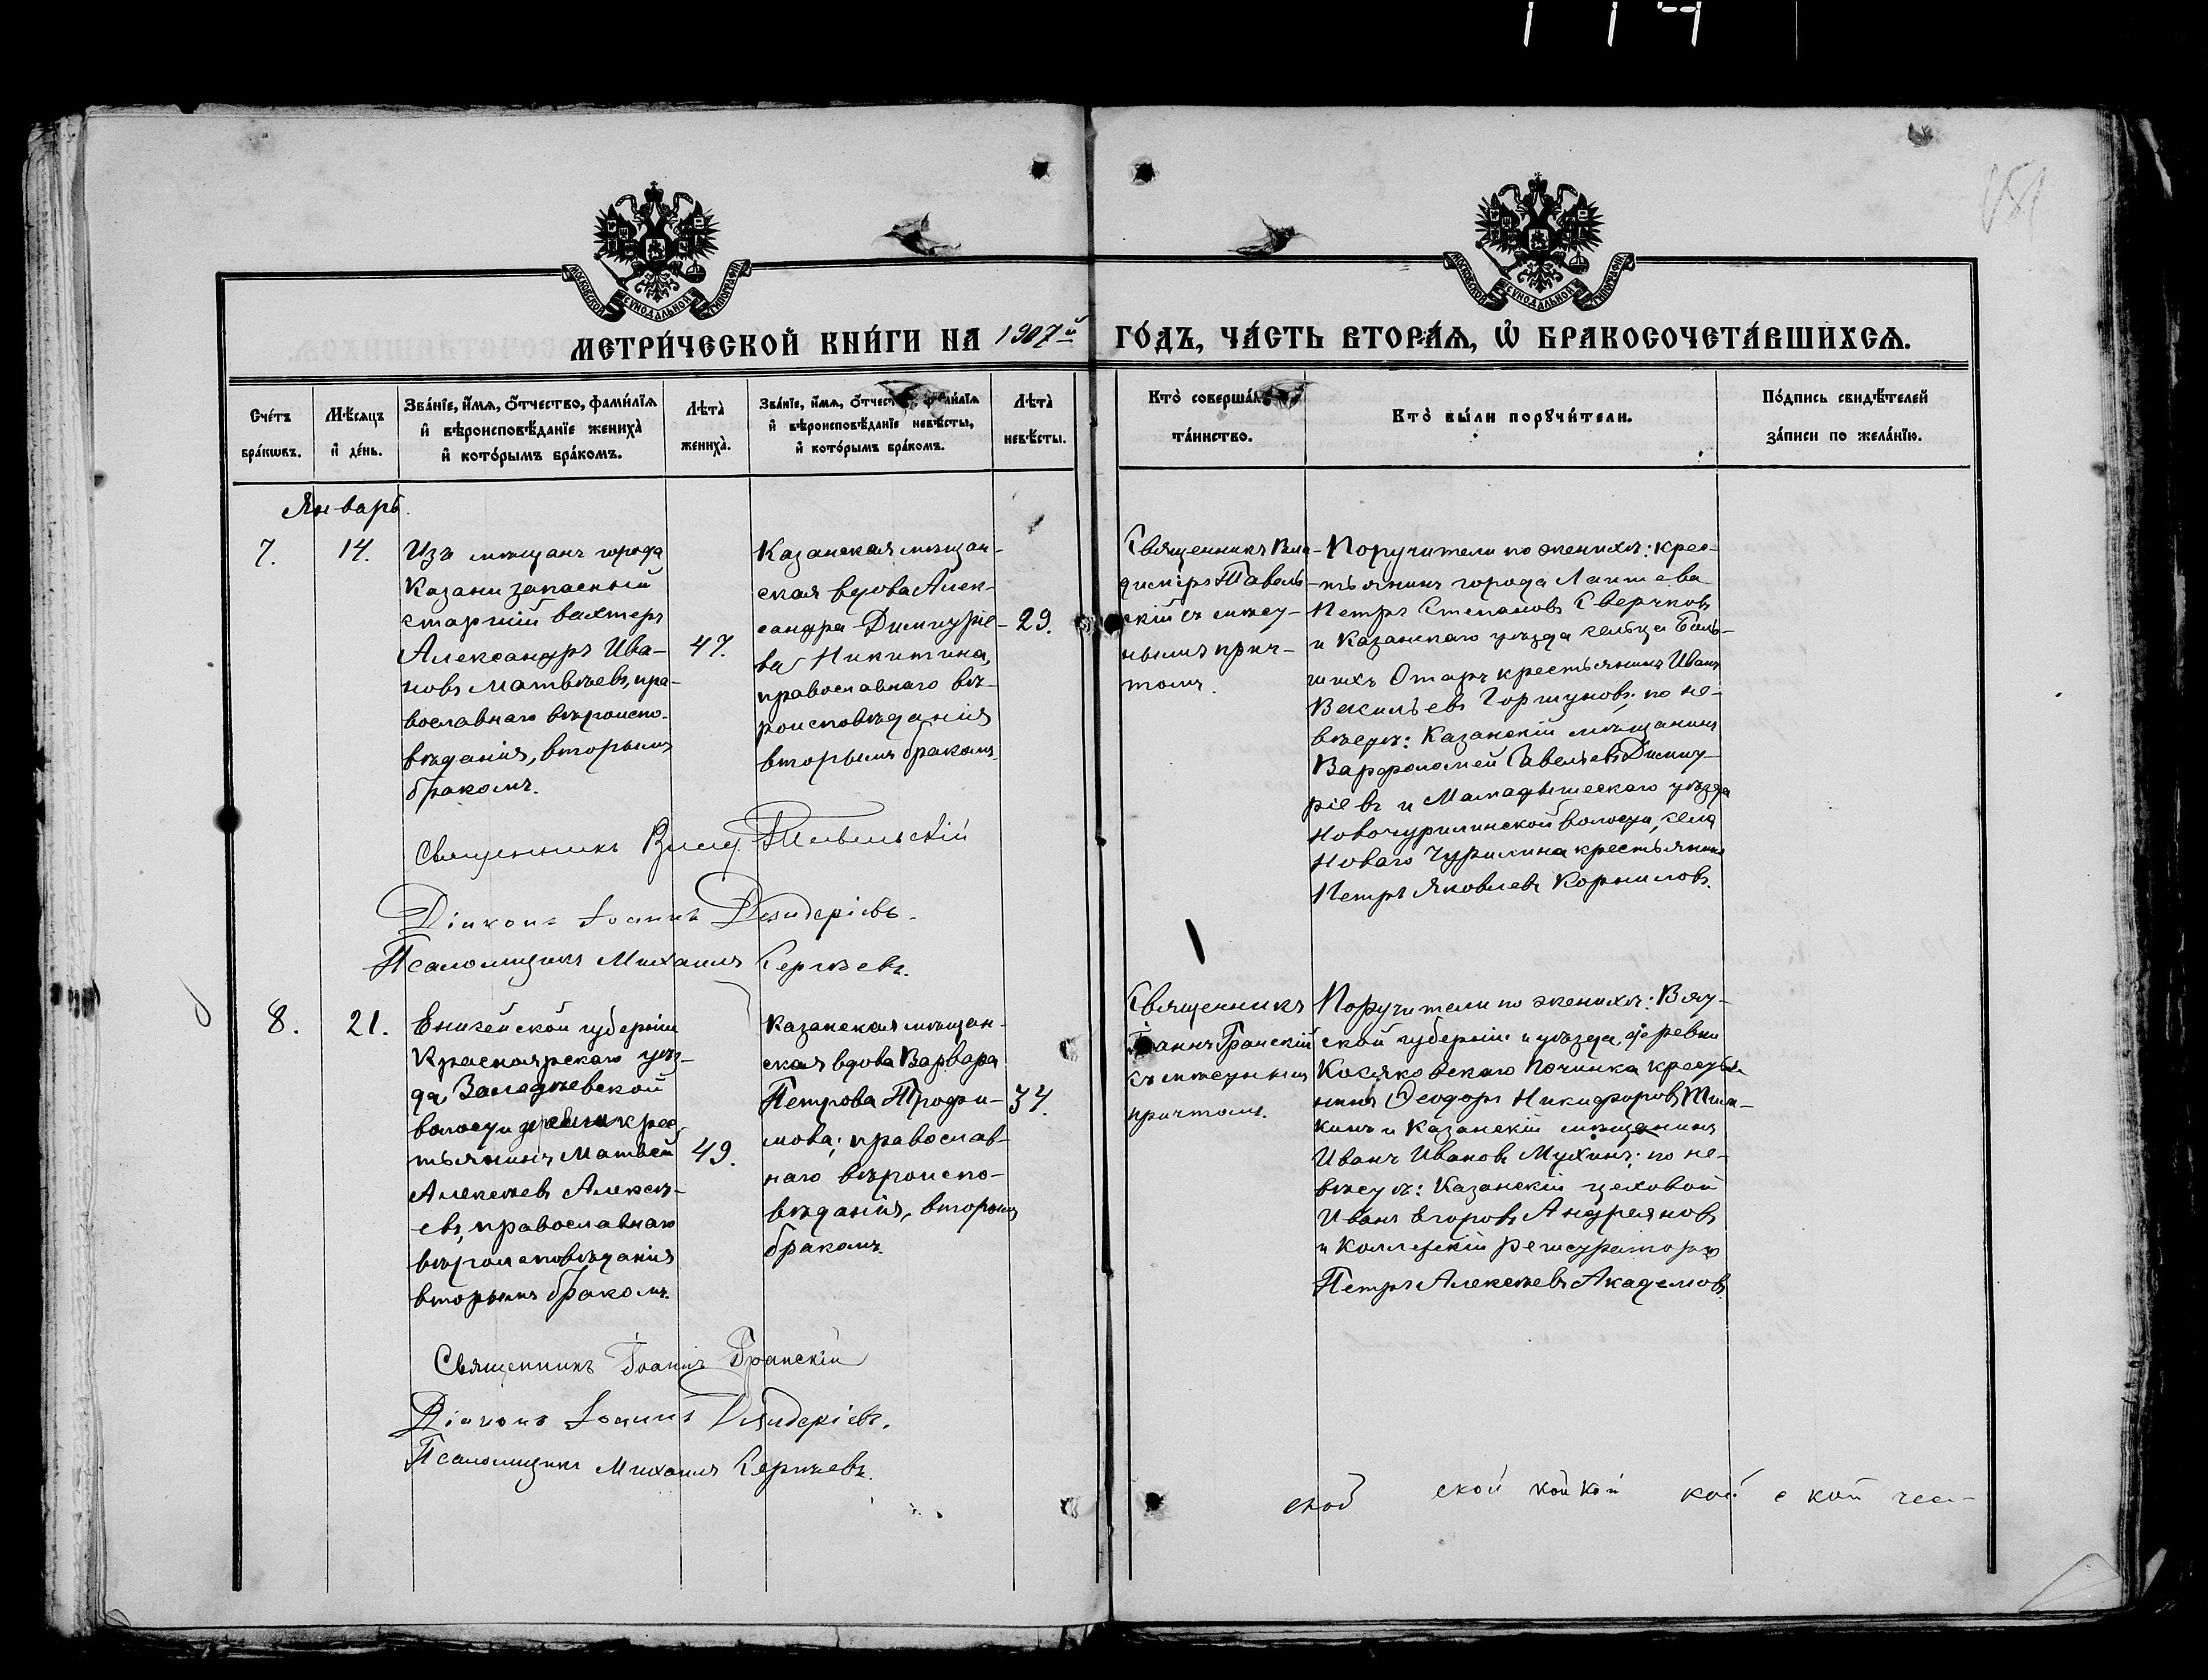 151
МОСКОВСКОЙ СѴНОДАЛЬНОЙ ТИПОГРАФІИ
МОСКОВСКОЙ СѴНОДАЛЬНОЙ ТИПОГРАФІИ
МЕТРИ́ЧЕСКОЙ КНИ́ГИ НА 1907й ГО́ДЪ, ЧА́СТЬ ВТОРА́Ѧ, Ѽ БРАКОСОЧЕТА́ВШИХСѦ.
Сче́тъ
бра́кѡвъ.
Мѣ́сѧцъ
и҆ де́нь.
Зва́нїе, и҆́мѧ, о҆́тчество, фами́лїѧ
и҆ вѣроисповѣ́данїе жениха̀
и҆ кото́рымъ бра́комъ.
Лѣта̀
жениха̀.
Зва́нїе, и҆́мѧ, о҆́тчество, фами́лїѧ
и҆ вѣроисповѣ́данїе невѣ́сты,
и҆ кото́рымъ бра́комъ.
Лѣта̀
невѣ́сты.
Кто̀ соверша́лъ
та́инство.
Кто̀ бы́ли порꙋчи́тели.
По́дпись свидѣ́телей
за́писи по жела́нїю.
Январь.
7.
14.
Изъ мѣщанъ города
Казани запасный
старшій вахтеръ
Александръ Ива-
новъ Матвѣевъ, пра-
вославнаго вѣроиспо-
вѣданія, вторымъ
бракомъ.
47.
Казанская мѣщан-
ская вдова Алек-
сандра Димитріе-
ва Никитина,
православнаго вѣ-
роисповѣданія
вторымъ бракомъ.
29.
Священникъ Вла-
диміръ Тавель-
скій съ мѣст-
нымъ прич-
томъ.
Поручители по женихѣ: крес-
тьянинъ города Лаишева
Петръ Степановъ Сверчковъ
и Казанскаго уѣзда сельца Боль-
шихъ Отаръ крестьянинъ Иванъ
Васильевъ Горшуновъ; по не-
вѣстѣ: Казанскій мѣщанинъ
Варфоломей Савельевъ Димит-
ріевъ и Мамадышскаго уѣзда
Новочурилинской волости, села
Новаго Чурилина крестьянинъ
Петръ Яковлевъ Корниловъ.
Священникъ Влад. Тавельскій
Діаконъ Іоаннъ Дезидеріевъ.
Псаломщикъ Михаилъ Сергѣевъ.
8.
21.
Енисейской губерніи
Красноярскаго уѣз-
да, Заледѣевской
волости и села крес-
тьянинъ Матвѣй
Алексѣевъ Алексѣ-
евъ, православнаго
вѣроисповѣданія
вторымъ бракомъ.
49.
Казанская мѣщан-
ская вдова Варвара
Петрова Трофи-
мова; православ-
наго вѣроиспо-
вѣданія, вторымъ
бракомъ.
34.
Священникъ
Іоаннъ Гранскій
съ мѣстнымъ
причтомъ.
Поручители по женихѣ: Вят-
ской губерніи и уѣзда, деревни
Косяковскаго Починка крестья-
нинъ Ѳеодоръ Никифоровъ
и Казанскій мѣщанинъ
Иванъ Ивановъ Мухинъ; по не-
вѣстѣ: Казанскій цеховой
Иванъ Егоровъ Андреяновъ
и коллежскій регистраторъ
Петръ Алексѣевъ Академовъ.
Священникъ Іоаннъ Гранскій
Діаконъ Іоаннъ Дезидеріевъ.
Псаломщикъ Михаилъ Сергѣевъ.
ской ской кой кой кой с кой